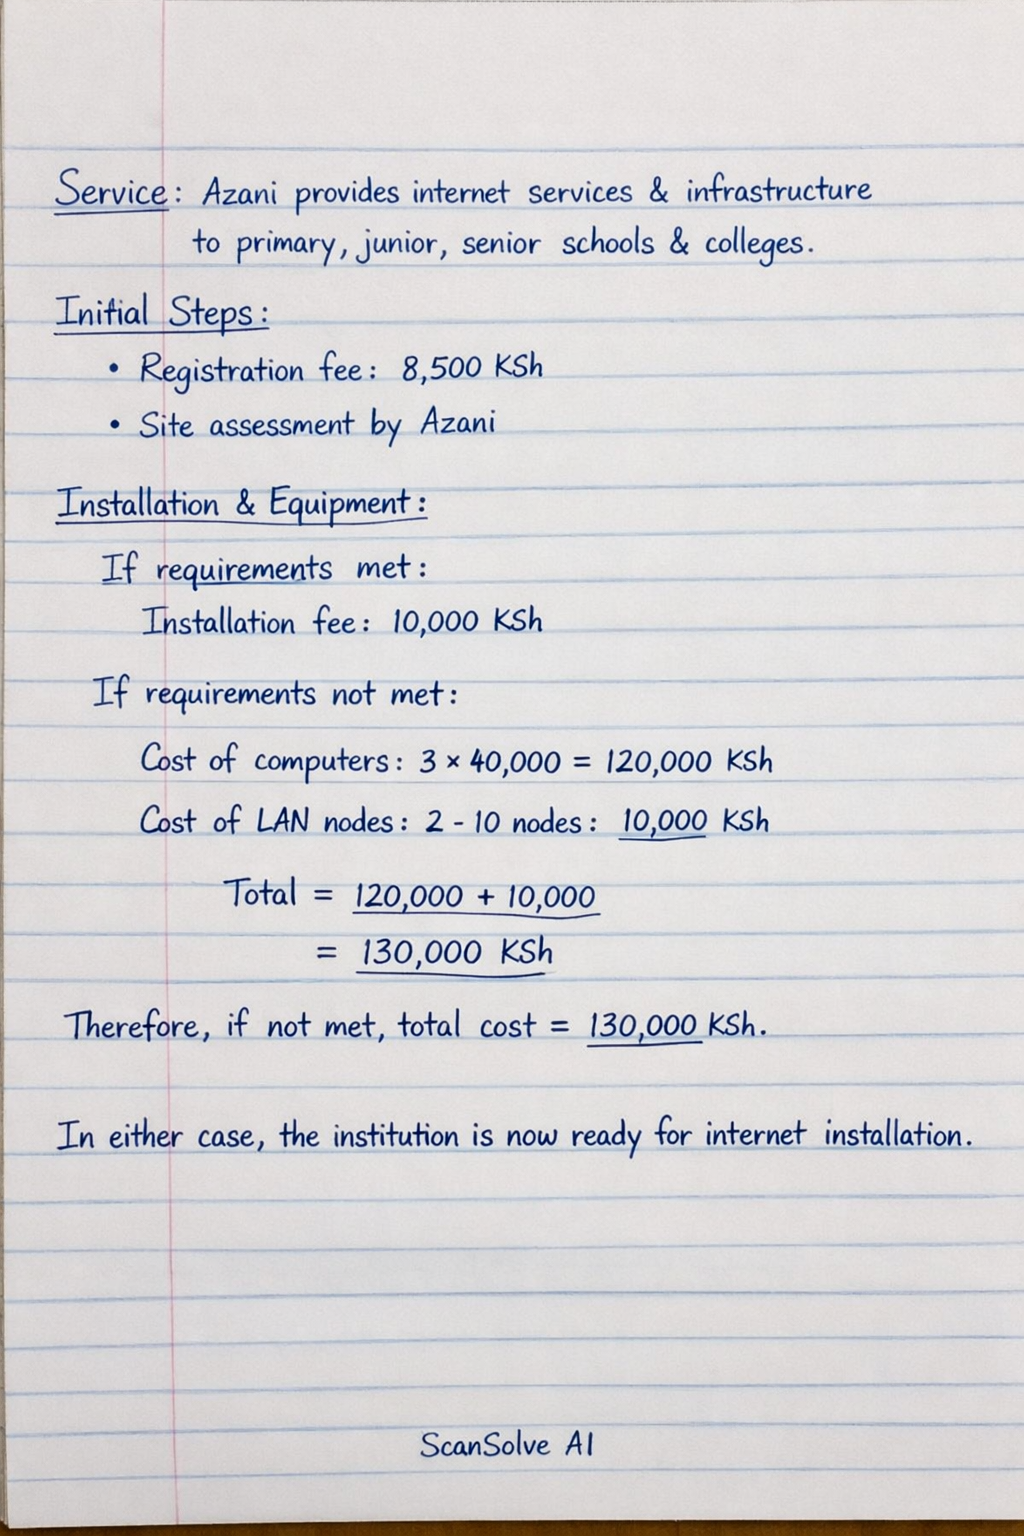 Service: Azani provides internet services & infrastructure
to primary, junior, senior schools & colleges.
Initial Steps:
• Registration fee: 8,500 KSh
• Site assessment by Azani
Installation & Equipment:
If requirements met:
Installation fee: 10,000 KSh
If requirements not met:
Cost of computers: 3 × 40,000 = 120,000 KSh
Cost of LAN nodes: 2 - 10 nodes: 10,000 KSh
Total = 120,000 + 10,000
= 130,000 KSh
Therefore, if not met, total cost = 130,000 KSh.
In either case, the institution is now ready for internet installation.
ScanSolve AI